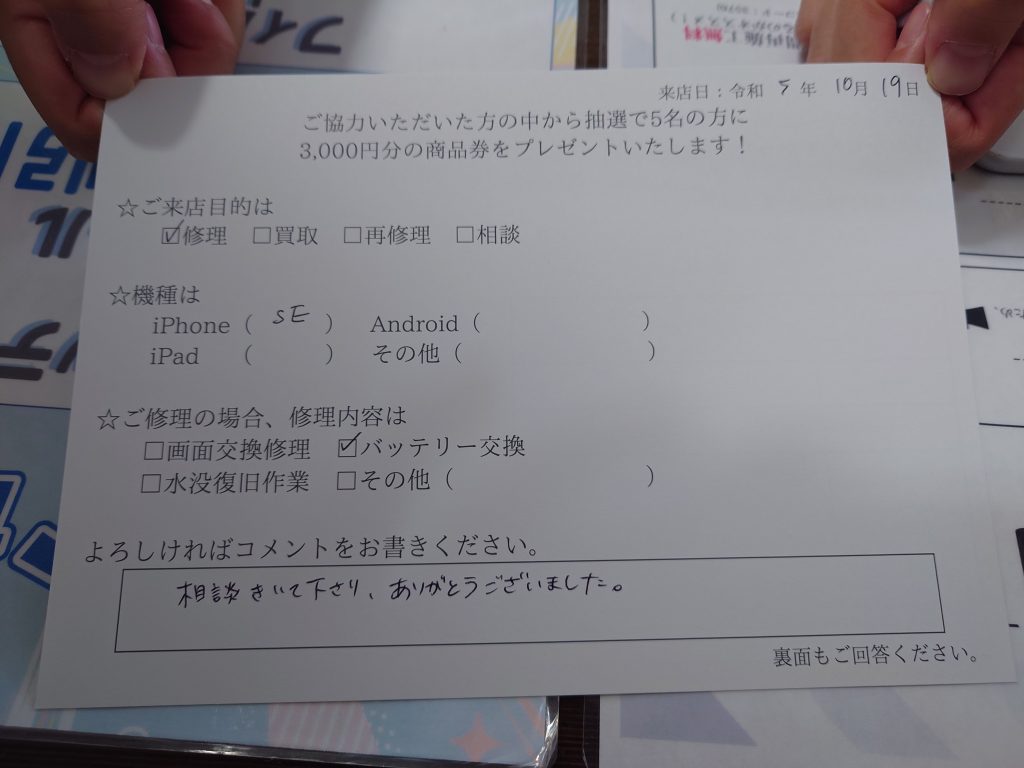 来店日：令和 5 年 10月 19日
ご協力いただいた方の中から抽選で5名の方に
3,000円分の商品券をプレゼントいたします！
☆ご来店目的は
☑修理 □買取 □再修理 □相談
☆機種は
iPhone（ SE ） Android（ ）
iPad （ ） その他（ ）
☆ご修理の場合、修理内容は
□画面交換修理 ☑バッテリー交換
□水没復旧作業 □その他（ ）
よろしければコメントをお書きください。
相談きいて下さり、ありがとうございました。
裏面もご回答ください。